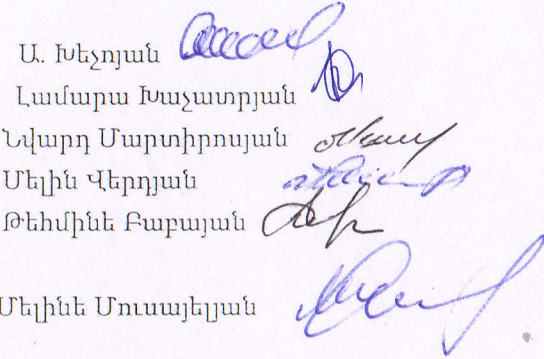 Ա. Խեչոյան
Լամարա Խաչատրյան
Նվարդ Մարտիրոսյան
Մելին Վերդյան
Թեհմինե Բաբայան
Մելինե Մուսայելյան